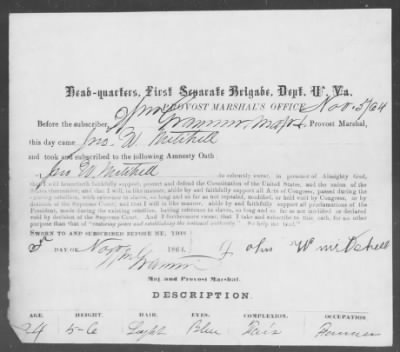 Head-quarters, First Separate Brigade, Dept. W. Va.
PROVOST MARSHAL'S OFFICE, Nov. 5/64
Before the subscriber, Wm Major & Provost Marshal,
this day came Jno. W. Mitchell
and took and subscribed to the following Amnesty Oath
I Jno W. Mitchell do solemnly swear, in presence of Almighty God,
that I will henceforth faithfully support, protect and defend the Constitution of the United States, and the union of the
States thereunder, and that I will, in like manner, abide by and faithfully support all Acts of Congress, passed during the
existing rebellion, with reference to slaves, so long and so far as not repealed, modified, or held void by Congress, or by
decision of the Supreme Court; and that I will in like manner, abide by and faithfully support all proclamations of the
President, made during the existing rebellion, having reference to slaves, so long and so far as not modified or declared
void by decision of the Supreme Court. And I furthermore swear, that I take and subscribe to this oath, for no other
purpose than that of "restoring peace and establishing the national authority." So help me God.
SWORN TO AND SUBSCRIBED BEFORE ME, THIS
5 DAY OF Nov 1864. John W mitchell
Maj and Provost Marshal.
DESCRIPTION.
AGE. HEIGHT. HAIR. EYES. COMPLEXION. OCCUPATION.
24 5-6 Light Blue Fair Farmer